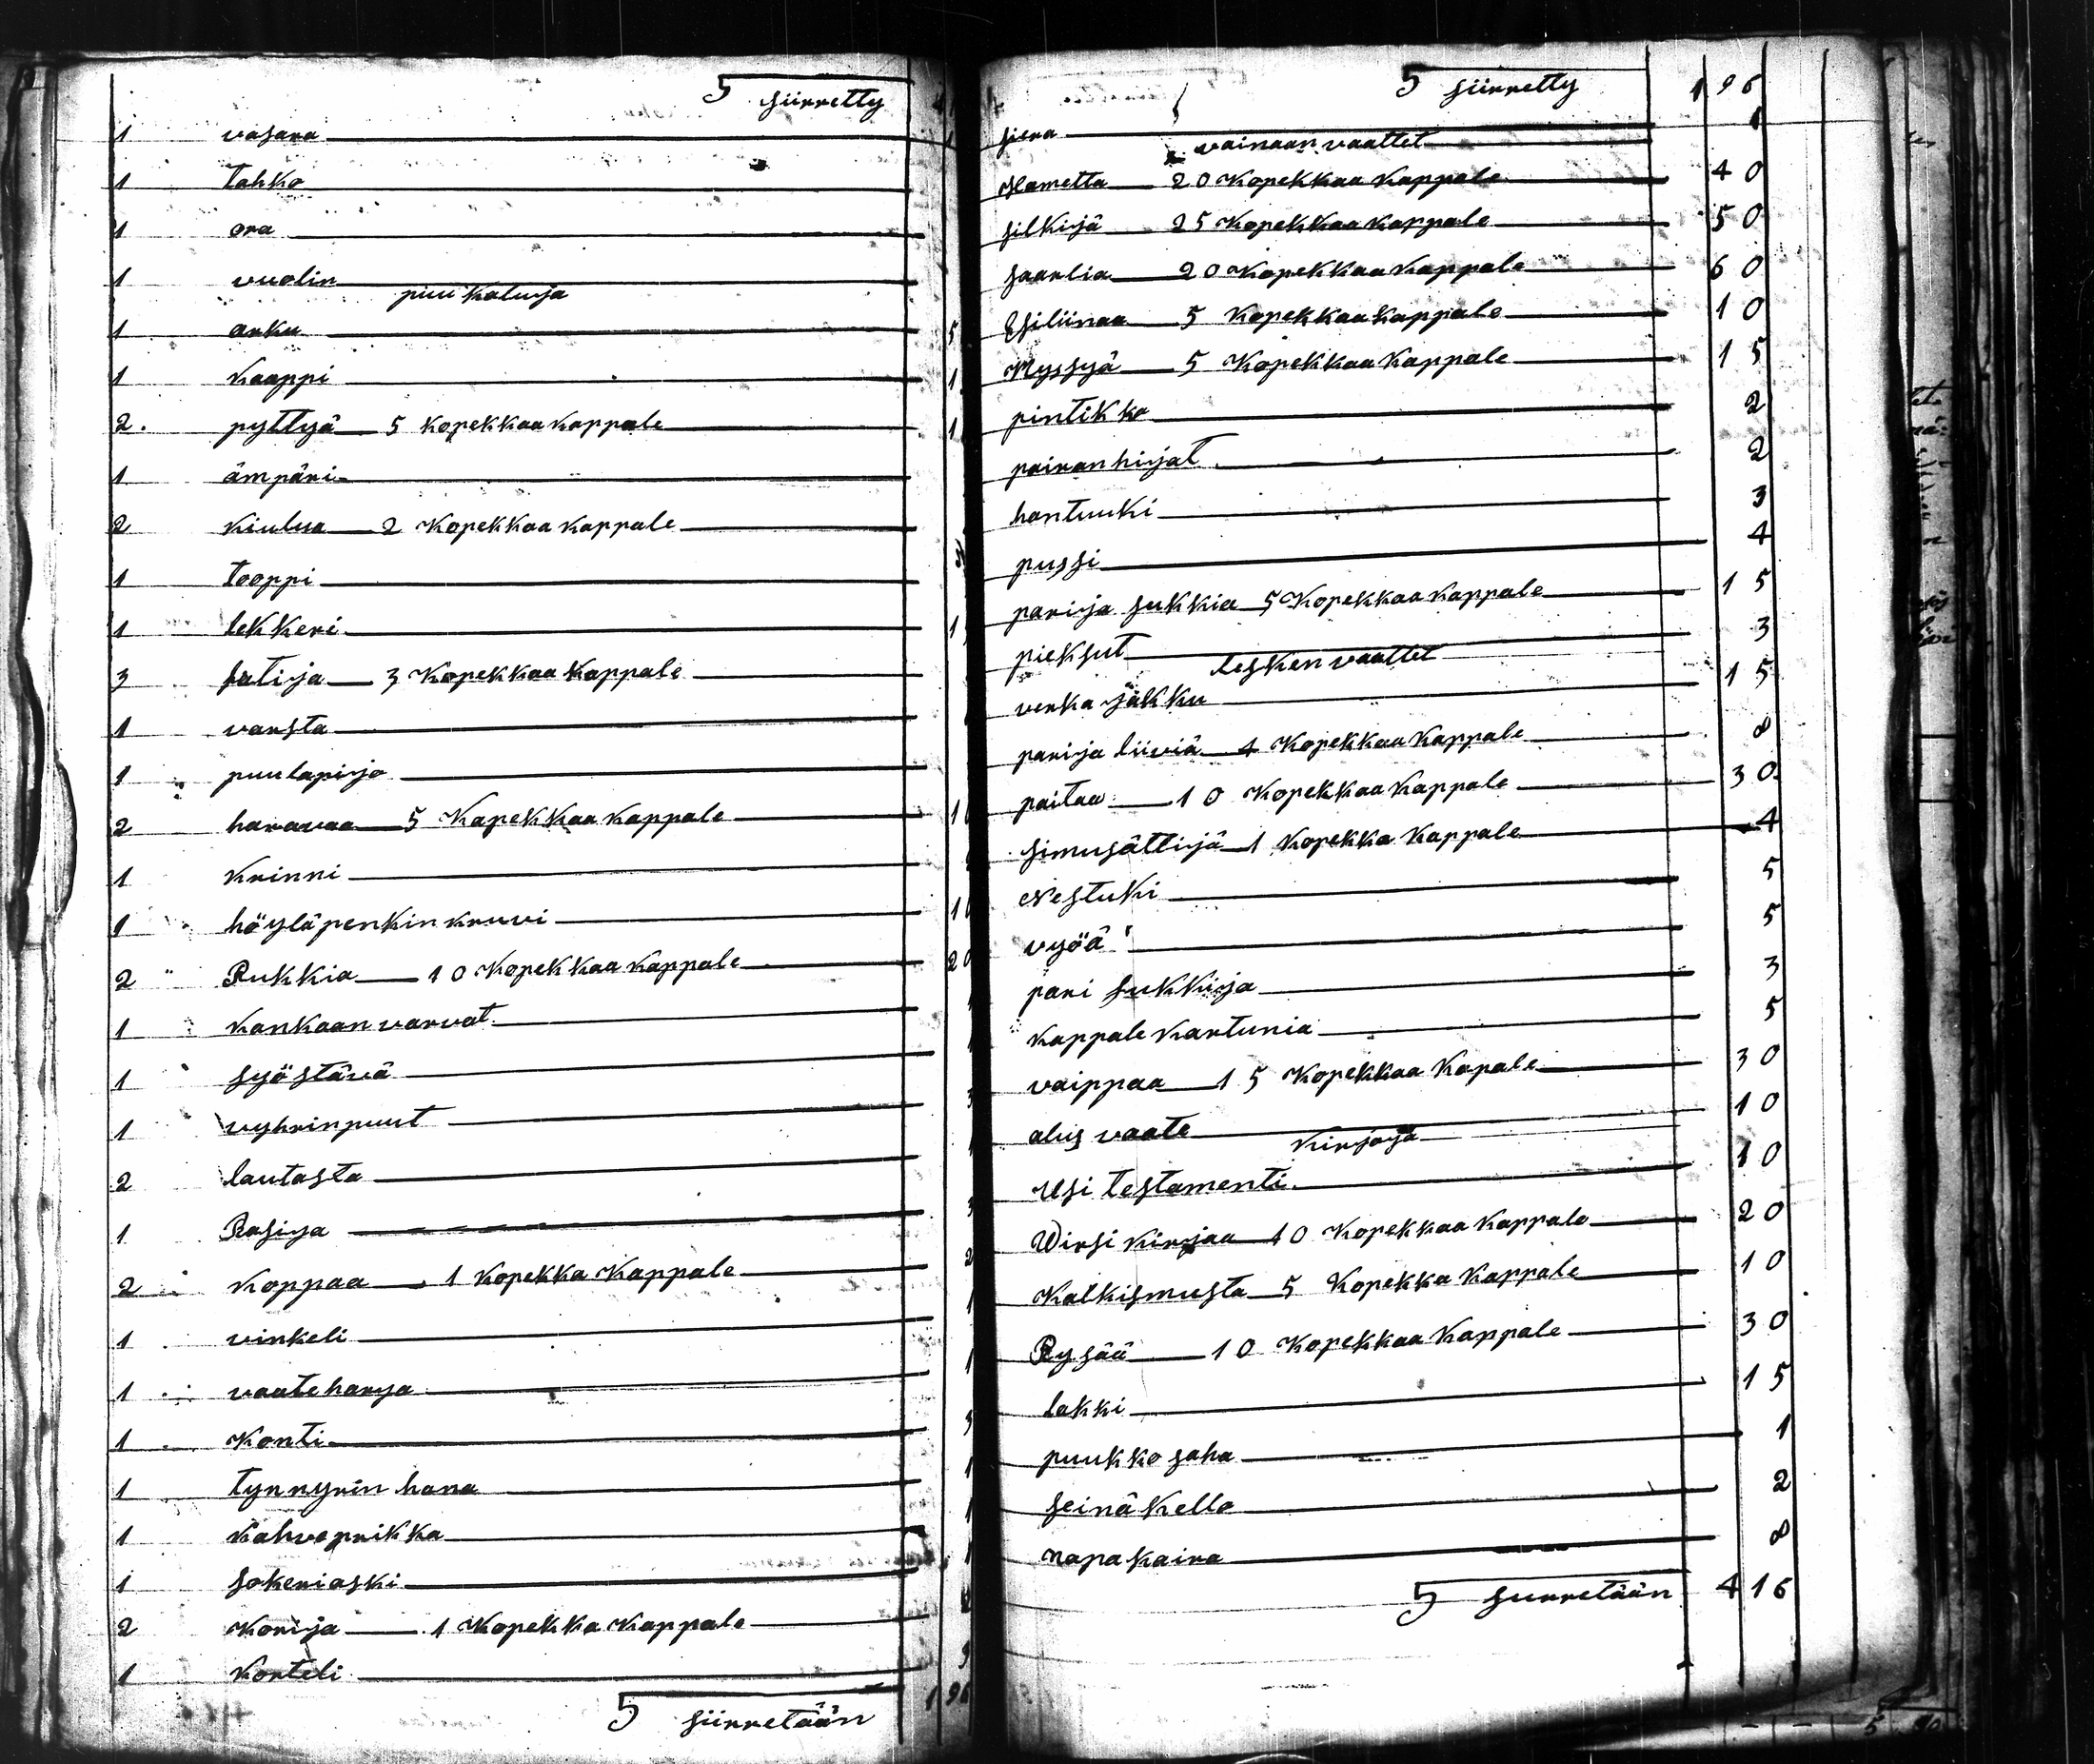 5 siirretty
1 vasara
1 Tahko
1 ora
1 vuolin
puu kaluja
1 arku 5
1 Kaappi
2 pyttyä 5 kopekkaa kappale
1 ämpäri
2 Kiulua 2 Kopekkaa kappale
1 Tooppi
1 lekkeri
3 satija 3 Kopekkaa kappale
1 varsta
1 puulapijo
2 haravaa 5 Kopekkaa kappale
1 Krinni
1 höyläpenkin kruvi
2 Rukkia 10 Kopekkaa kappale 20
1 Kankaan varvat
1 syöstävä
1 vyhrinpuut
2 lautasta
1 Rasija
2 Koppaa 1 Kopekka Kappale
1 vinkeli
1 vaateharja
1 Konti
1 Tynnyrin hana
1 Kahveprikka
1 sokeriaski
2 Korija 1 Kopekka Kappale
1 Korteli
5 siirretään 1 96
5 siirretty 1 96
siera 1
vainaan vaattet
Hametta 20 Kopekkaa Kappale 40
silkijä 25 Kopekkaa Kappale 50
saarlia 20 Kopekkaa Kappale 60
Esiliinaa 5 Kopekkaa kappale 10
Myssyä 5 Kopekkaa Kappale 15
pintikko 2
pairanhijat 2
hantuuki 3
pussi 4
parija sukkia 5 Kopekkaa Kappale 15
pieksut 3
lesken vaattet
verka jakku 15
parija liiviä 4 Kopekkaa Kappale 8
paitaa 10 Kopekkaa Kappale 30
simusättijä 1 Kopekka Kappale 4
Nestuki 5
vyöä 5
pari sukkija 3
Kappale Kartunia 5
vaippaa 15 Kopekkaa Kapale 30
alus vaate 10
Kirjoja
Usi Testamenti 10
Wirsi Kirjaa 10 Kopekkaa Kappale 20
Katkismusta 5 Kopekka Kappale 10
Rysää 10 Kopekkaa Kappale 30
lakki 15
puukko saha 1
seinä Kello 2
napakaira 8
5 siirretään 4 16